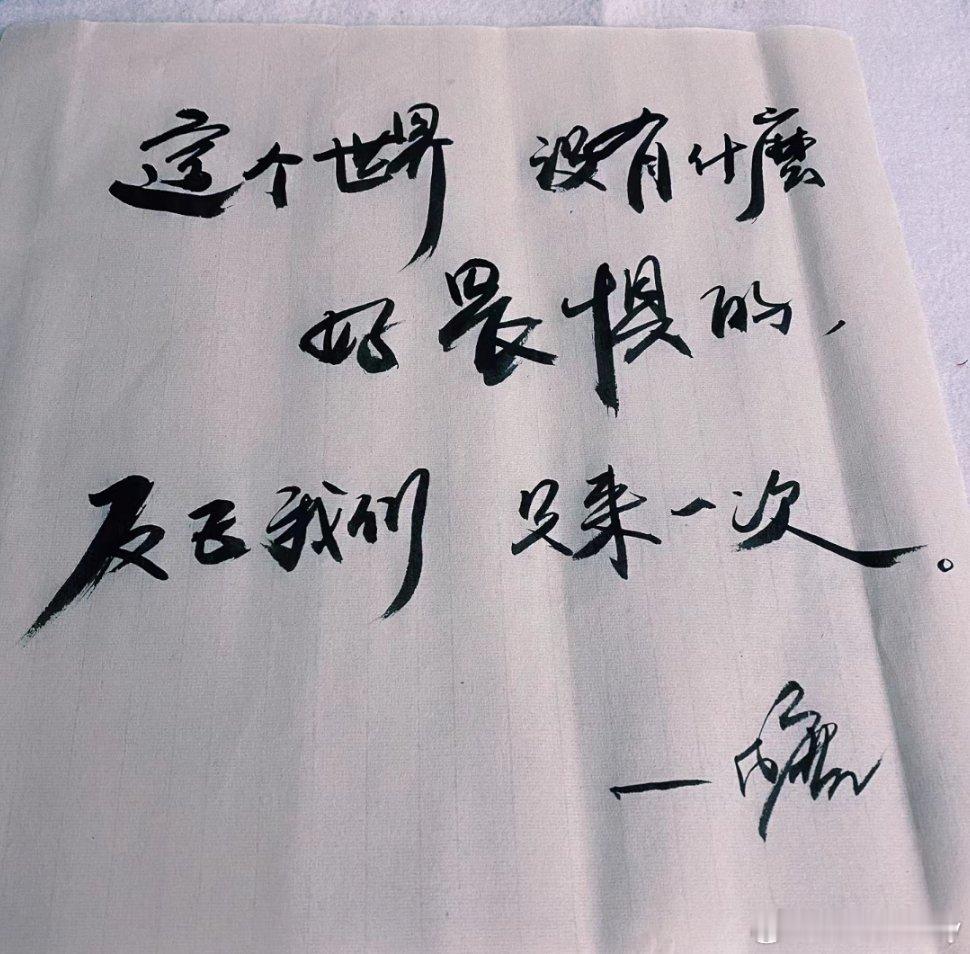 这个世界 没有什麼
好畏惧的，
反正我们 只来一次。
一